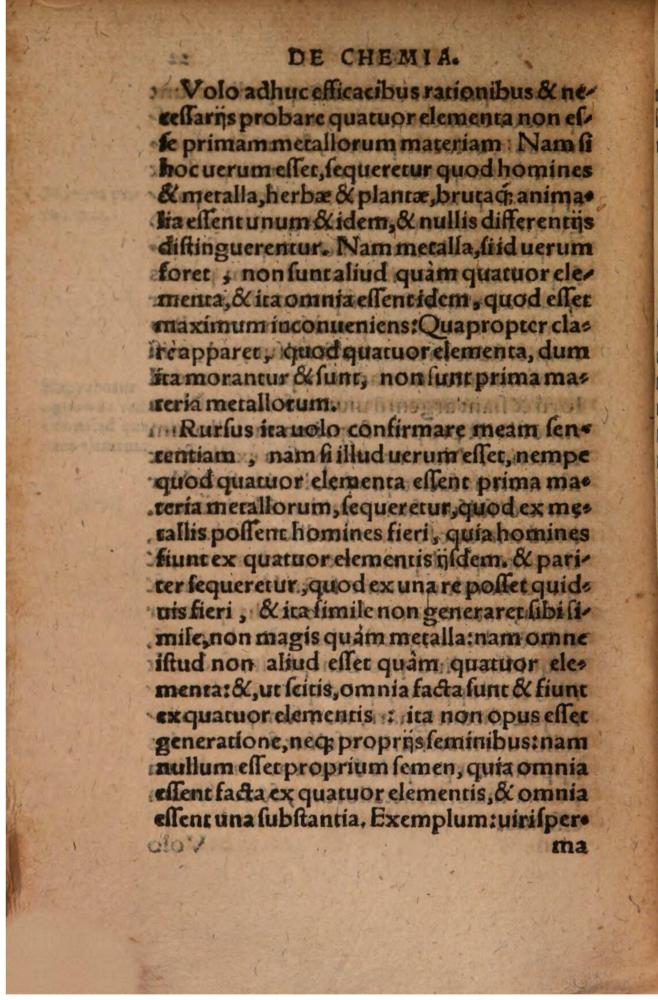 DE CHEMIA.
Volo adhuc efficacibus rationibus & ne-
ceſſarijs probare quatuor elementa non eſ-
ſe primam metallorum materiam : Nam ſi
hoc uerum eſſet, ſequeretur quod homines
& metalla, herbæ & plantæ, brutaq́; anima-
lia eſſent unum & idem, & nullis differentijs
diſtinguerentur. Nam metalla, ſi id uerum
foret , non ſunt aliud quàm quatuor ele-
menta, & ita omnia eſſent idem, quod eſſet
maximum inconueniens: Quapropter cla-
rè apparet, quod quatuor elementa, dum
ita morantur & ſunt, non ſunt prima ma-
teria metallorum.
Rurſus ita uolo confirmare meam ſen-
tentiam , nam ſi illud uerum eſſet, nempe
quod quatuor elementa eſſent prima ma-
teria metallorum, ſequeretur, quod ex me-
tallis poſſent homines fieri, quia homines
fiunt ex quatuor elementis ijſdem. & pari-
ter ſequeretur, quod ex una re poſſet quid-
uis fieri , & ita ſimile non generaret ſibi ſi-
mile, non magis quàm metalla: nam omne
iſtud non aliud eſſet quàm quatuor ele-
menta: &, ut ſcitis, omnia facta ſunt & fiunt
ex quatuor elementis : ita non opus eſſet
generatione, neq; proprijs ſeminibus: nam
nullum eſſet proprium ſemen, quia omnia
eſſent facta ex quatuor elementis, & omnia
eſſent una ſubſtantia. Exemplum: uiri ſper-
ma